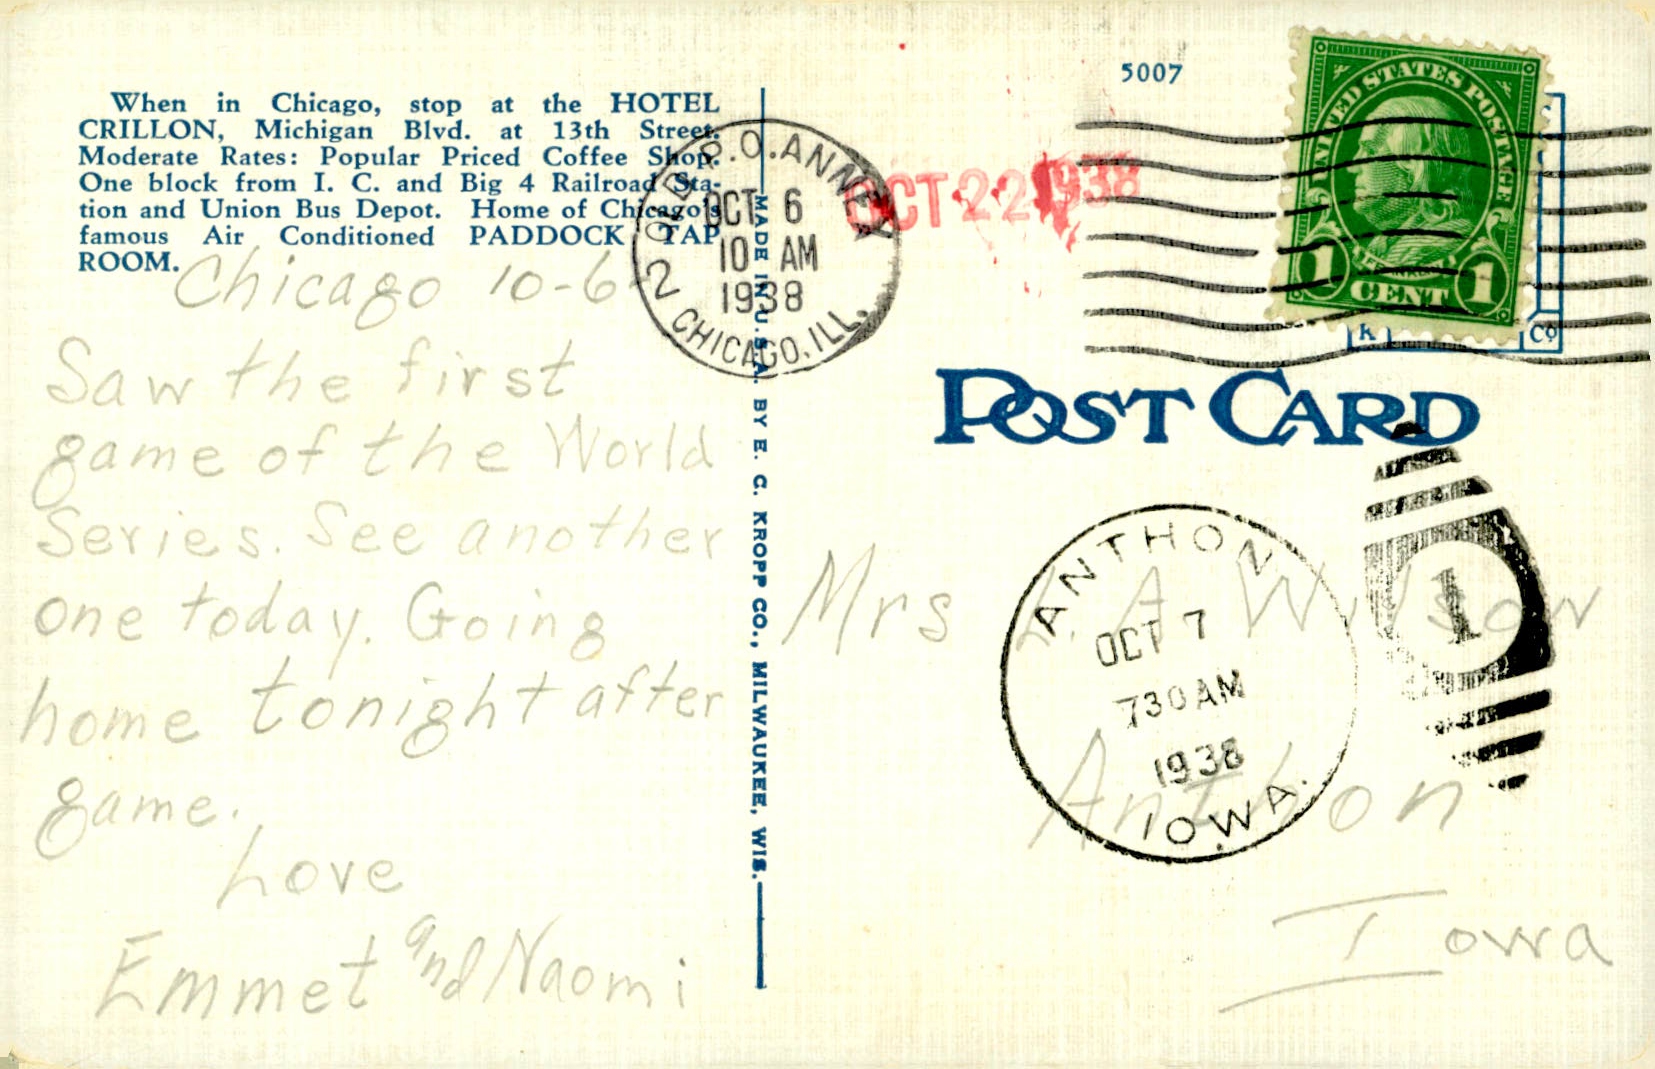 When in Chicago, stop at the HOTEL
CRILLON, Michigan Blvd. at 13th Street.
Moderate Rates: Popular Priced Coffee Shop.
One block from I. C. and Big 4 Railroad Sta-
tion and Union Bus Depot. Home of Chicago's
famous Air Conditioned PADDOCK TAP
ROOM.
Chicago 10-6-
Saw the first
game of the World
Series. See another
one today. Going
home tonight after
game.
Love
Emmet and Naomi
MADE IN U.S.A. BY E. C. KROPP CO., MILWAUKEE, WIS.
OLD P.O. ANNEX
OCT 6
10 AM
1938
2
CHICAGO, ILL.
OCT 22 1938
5007
UNITED STATES POSTAGE
FRANKLIN
1 CENT 1
K Co
POST CARD
Mrs L. A Wilson
Anthon
Iowa
ANTHON
OCT 7
730 AM
1938
IOWA.
1